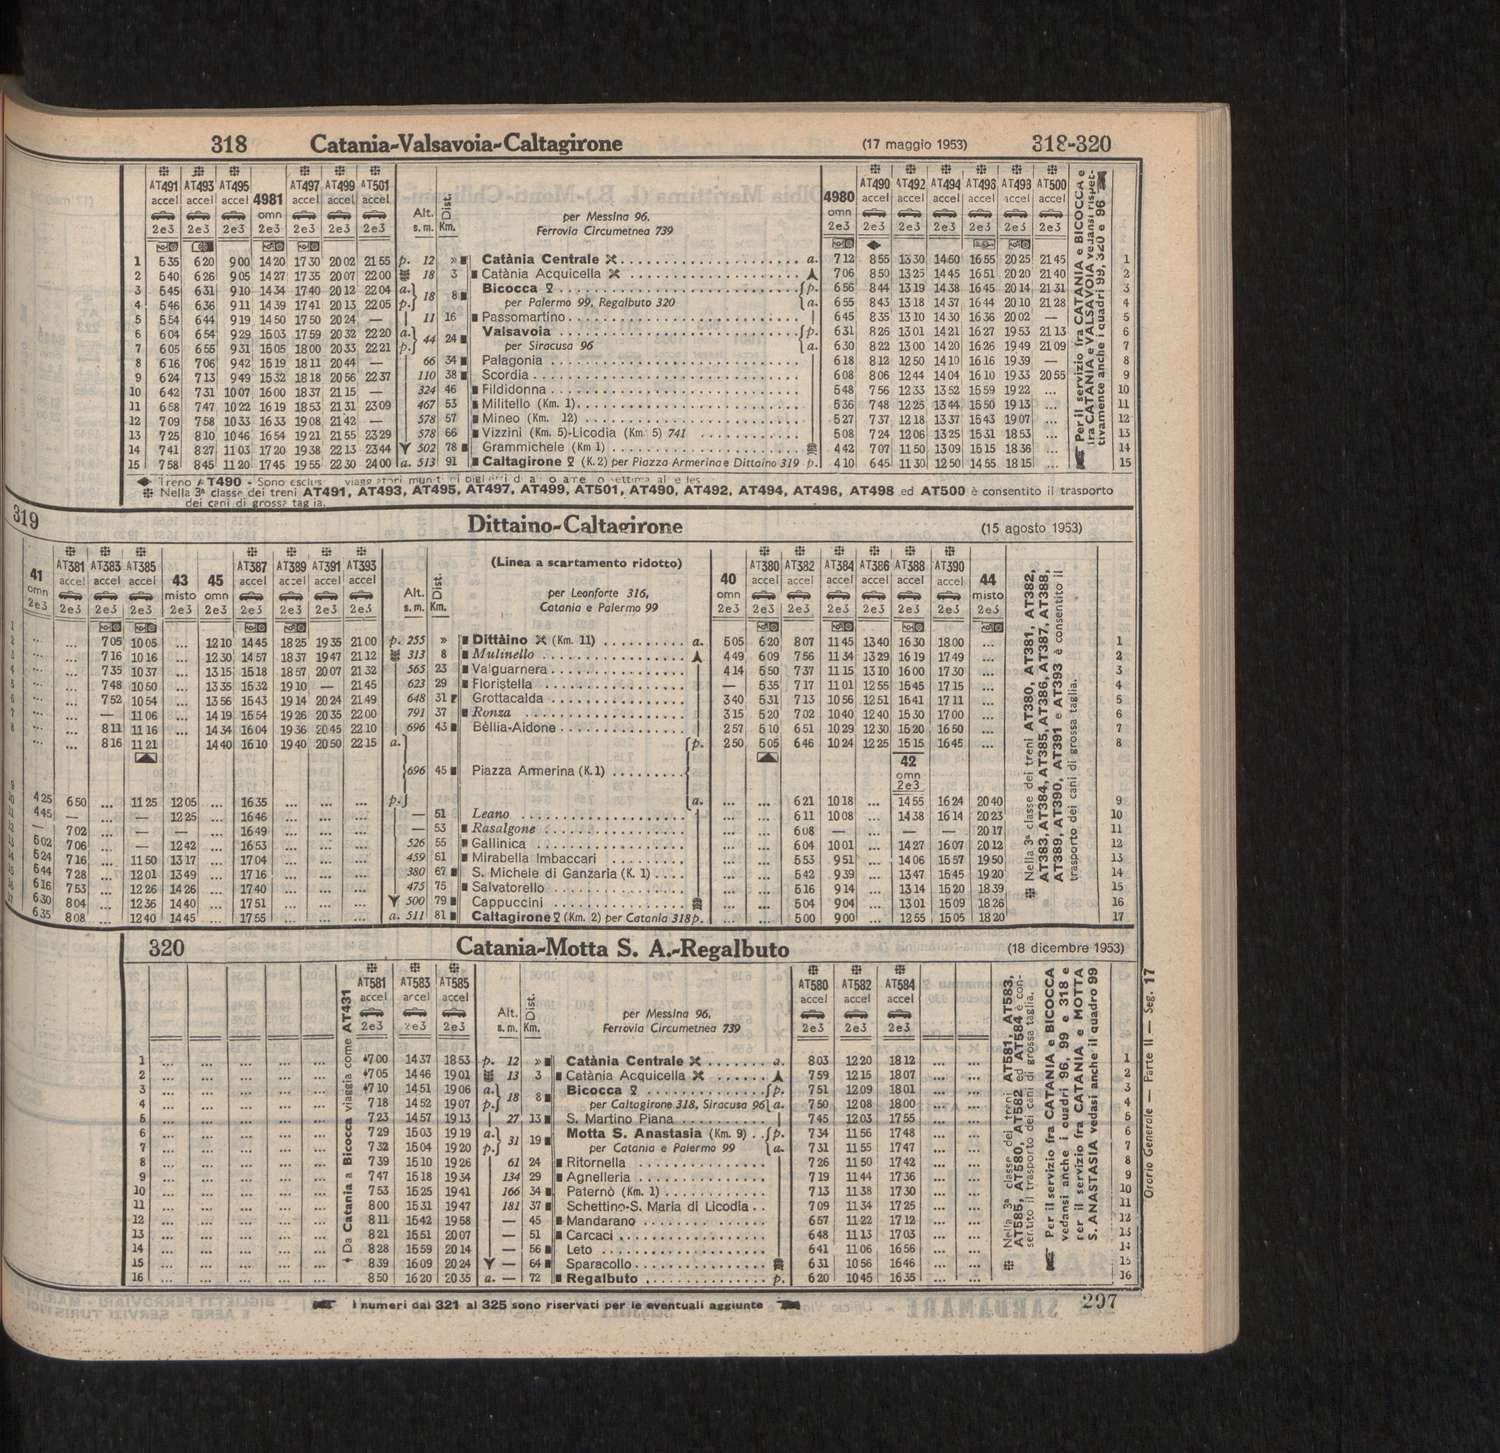 318 Catania-Valsavoia-Caltagirone (17 maggio 1953) 318-320
AT491 AT493 AT495 4981 AT497 AT499 AT501 4980 AT490 AT492 AT494 AT498 AT500
accel accel accel omn accel accel accel Alt. s.m. Dist. Km. per Messina 96. Ferrovia Circumetnea 739 omn accel accel accel accel accel accel
2e3 2e3 2e3 2e3 2e3 2e3 2e3 2e3 2e3 2e3 2e3 2e3 2e3 2e3
1 5 35 6 20 9 00 14 20 17 30 20 02 21 55 p. 12 » Catània Centrale a. 7 12 8 55 13 30 14 50 16 55 20 25 21 45 1
2 5 40 6 26 9 05 14 27 17 35 20 07 22 00 18 3 Catània Acquicella 7 06 8 50 13 25 14 45 16 51 20 20 21 40 2
3 5 45 6 31 9 10 14 34 17 40 20 12 22 04 a. 18 8 Bicocca p. 6 56 8 44 13 19 14 38 16 45 20 14 21 31 3
4 5 46 6 36 9 11 14 39 17 41 20 13 22 05 p. per Palermo 99, Regalbuto 320 a. 6 55 8 43 13 18 14 37 16 44 20 10 21 28 4
5 5 54 6 44 9 19 14 50 17 50 20 24 — 11 16 Passomartino 6 45 8 35 13 10 14 30 16 36 20 02 — 5
6 6 04 6 54 9 29 15 03 17 59 20 32 22 20 a. 44 24 Valsavoia p. 6 31 8 26 13 01 14 21 16 27 19 53 21 13 6
7 6 05 6 55 9 31 15 05 18 00 20 33 22 21 p. per Siracusa 96 a. 6 30 8 22 13 00 14 20 16 26 19 49 21 09 7
8 6 16 7 06 9 42 15 19 18 11 20 44 — 66 34 Palagonia 6 18 8 12 12 50 14 10 16 16 19 39 — 8
9 6 24 7 13 9 49 15 32 18 18 20 56 22 37 110 38 Scordia 6 08 8 06 12 44 14 04 16 10 19 33 20 55 9
10 6 42 7 31 10 07 16 00 18 37 21 15 — 324 46 Fildidonna 5 48 7 56 12 33 13 52 15 59 19 22 ... 10
11 6 58 7 47 10 22 16 19 18 53 21 31 23 09 467 53 Militello (Km. 1) 5 36 7 48 12 25 13 44 15 50 19 13 ... 11
12 7 09 7 58 10 33 16 33 19 08 21 42 — 578 57 Mineo (Km. 12) 5 27 7 37 12 18 13 37 15 43 19 07 ... 12
13 7 25 8 10 10 46 16 54 19 21 21 55 23 29 578 66 Vizzini (Km. 5)-Licodia (Km. 5) 741 5 08 7 24 12 06 13 25 15 31 18 53 ... 13
14 7 41 8 27 11 03 17 20 19 38 22 13 23 44 502 78 Grammichele (Km 1) 4 42 7 07 11 50 13 09 15 15 18 36 ... 14
15 7 58 8 45 11 20 17 45 19 55 22 30 24 00 a. 513 91 Caltagirone (K. 2) per Piazza Armerina e Dittaino 319 p. 4 10 6 45 11 30 12 50 14 55 18 15 ... 15
Per il servizio fra CATANIA e BICOCCA e
fra CATANIA e VALSAVOIA vedansi rispet-
tivamente anche i quadri 99, 320 e 96
Treno AT490 - Sono
Nella 3ª classe dei treni AT491, AT493, AT495, AT497, AT499, AT501, AT490, AT492, AT494, AT496, AT498 ed AT500 è consentito il trasporto
dei cani di grossa taglia.
319 Dittaino-Caltagirone (15 agosto 1953)
41 AT381 AT383 AT385 43 45 AT387 AT389 AT391 AT393 (Linea a scartamento ridotto) 40 AT380 AT382 AT384 AT386 AT388 AT390 44
omn accel accel accel misto omn accel accel accel accel Alt. s.m. Dist. Km. per Leonforte 316, omn accel accel accel accel accel accel misto
2e3 2e3 2e3 2e3 2e3 2e3 2e3 2e3 2e3 2e3 Catania e Palermo 99 2e3 2e3 2e3 2e3 2e3 2e3 2e3 2e3
1 ... ... 7 05 10 05 ... 12 10 14 45 18 25 19 35 21 00 p. 255 » Dittàino (Km. 11) a. 5 05 6 20 8 07 11 45 13 40 16 30 18 00 ... 1
2 ... ... 7 16 10 16 ... 12 30 14 57 18 37 19 47 21 12 313 8 Mulinello 4 49 6 09 7 56 11 34 13 29 16 19 17 49 ... 2
3 ... ... 7 35 10 37 ... 13 15 15 18 18 57 20 07 21 32 565 23 Valguarnera 4 14 5 50 7 37 11 15 13 10 16 00 17 30 ... 3
4 ... ... 7 48 10 50 ... 13 35 15 32 19 10 — 21 45 623 29 Floristella — 5 35 7 17 11 01 12 55 15 45 17 15 ... 4
5 ... ... 7 52 10 54 ... 13 56 15 43 19 14 20 24 21 49 648 31 Grottacalda 3 40 5 31 7 13 10 56 12 51 15 41 17 11 ... 5
6 ... ... — 11 06 ... 14 19 15 54 19 26 20 35 22 00 791 37 Ronza 3 15 5 20 7 02 10 40 12 40 15 30 17 00 ... 6
7 ... ... 8 11 11 16 ... 14 34 16 04 19 36 20 45 22 10 696 43 Bèllia-Aidone 2 57 5 10 6 51 10 29 12 30 15 20 16 50 ... 7
8 ... ... 8 16 11 21 14 40 16 10 19 40 20 50 22 15 a. p. 2 50 5 05 6 46 10 24 12 25 15 15 16 45 ... 8
696 45 Piazza Armerina (K.1) 42 omn 2e3
9 4 25 6 50 ... 11 25 12 05 ... 16 35 ... ... ... p. a. ... ... 6 21 10 18 ... 14 55 16 24 20 40 9
10 4 45 — ... — 12 25 ... 16 46 ... ... ... — 51 Leano ... ... 6 11 10 08 ... 14 38 16 14 20 23 10
11 — 7 02 ... — — ... 16 49 ... ... ... — 53 Rasalgone ... ... 6 08 — ... — — 20 17 11
12 5 02 7 06 ... — 12 42 ... 16 53 ... ... ... 526 55 Gallinica ... ... 6 04 10 01 ... 14 27 16 07 20 12 12
13 5 24 7 16 ... 11 50 13 17 ... 17 04 ... ... ... 459 61 Mirabella Imbaccari ... ... 5 53 9 51 ... 14 06 15 57 19 50 13
14 5 44 7 28 ... 12 01 13 49 ... 17 16 ... ... ... 380 67 S. Michele di Ganzaria (K. 1) ... ... 5 42 9 39 ... 13 47 15 45 19 20 14
15 6 16 7 53 ... 12 26 14 26 ... 17 40 ... ... ... 475 75 Salvatorello ... ... 5 16 9 14 ... 13 14 15 20 18 39 15
16 6 30 8 04 ... 12 36 14 40 ... 17 51 ... ... ... 500 79 Cappuccini ... ... 5 04 9 04 ... 13 01 15 09 18 26 16
17 6 35 8 08 ... 12 40 14 45 ... 17 55 ... ... ... a. 511 81 Caltagirone (Km. 2) per Catania 318 p. ... ... 5 00 9 00 ... 12 55 15 05 18 20 17
Nella 3ª classe dei treni AT380, AT381, AT382,
AT383, AT384, AT385, AT386, AT387, AT388,
AT389, AT390, AT391 e AT393 è consentito il
trasporto dei cani di grossa taglia.
320 Catania-Motta S. A.-Regalbuto (18 dicembre 1953)
Da Catania a Bicocca viaggia come AT431
AT581 AT583 AT585 AT580 AT582 AT584
accel accel accel Alt. s.m. Dist. Km. per Messina 96, accel accel accel
2e3 2e3 2e3 Ferrovia Circumetnea 739 2e3 2e3 2e3
1 ... ... ... ... ... 7 00 14 37 18 53 p. 12 » Catània Centrale a. 8 03 12 20 18 12 ... ... 1
2 ... ... ... ... ... 7 05 14 46 19 01 13 3 Catània Acquicella 7 59 12 15 18 07 ... ... 2
3 ... ... ... ... ... 7 10 14 51 19 06 a. 18 8 Bicocca p. 7 51 12 09 18 01 ... ... 3
4 ... ... ... ... ... 7 18 14 52 19 07 p. per Caltagirone 318, Siracusa 96 a. 7 50 12 08 18 00 ... ... 4
5 ... ... ... ... ... 7 23 14 57 19 13 27 13 S. Martino Piana 7 45 12 03 17 55 ... ... 5
6 ... ... ... ... ... 7 29 15 03 19 19 a. 31 19 Motta S. Anastasia (Km. 9) p. 7 34 11 56 17 48 ... ... 6
7 ... ... ... ... ... 7 32 15 04 19 20 p. per Catania e Palermo 99 a. 7 31 11 55 17 47 ... ... 7
8 ... ... ... ... ... 7 39 15 10 19 26 61 24 Ritornella 7 26 11 50 17 42 ... ... 8
9 ... ... ... ... ... 7 47 15 18 19 34 134 29 Agnelleria 7 19 11 44 17 36 ... ... 9
10 ... ... ... ... ... 7 53 15 25 19 41 166 34 Paternò (Km. 1) 7 13 11 38 17 30 ... ... 10
11 ... ... ... ... ... 8 00 15 31 19 47 181 37 Schettino-S. Maria di Licodia 7 09 11 34 17 25 ... ... 11
12 ... ... ... ... ... 8 11 15 42 19 58 — 45 Mandarano 6 57 11 22 17 12 ... ... 12
13 ... ... ... ... ... 8 21 15 51 20 07 — 51 Carcaci 6 48 11 13 17 03 ... ... 13
14 ... ... ... ... ... 8 28 15 59 20 14 — 56 Leto 6 41 11 06 16 56 ... ... 14
15 ... ... ... ... ... 8 39 16 09 20 24 — 64 Sparacollo 6 31 10 56 16 46 ... ... 15
16 ... ... ... ... ... 8 50 16 20 20 35 a. — 72 Regalbuto p. 6 20 10 45 16 35 ... ... 16
Nella 3ª classe dei treni AT581, AT583,
AT585, AT580, AT582 ed AT584 è con-
sentito il trasporto dei cani di grossa taglia.
Per il servizio fra CATANIA e BICOCCA
vedansi anche i quadri 96, 99 e 318 e
per il servizio fra CATANIA e MOTTA
S. ANASTASIA vedasi anche il quadro 99
Orario Generale — Parte II — Seg. 17
I numeri dal 321 al 325 sono riservati per le eventuali aggiunte
297